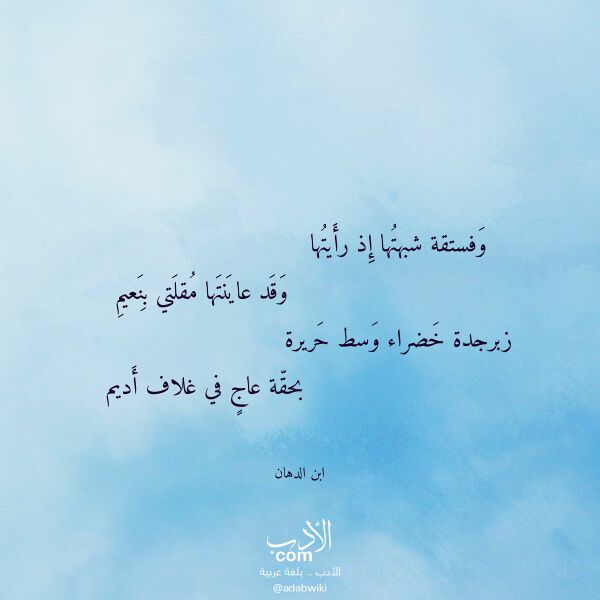 وَفستقة شبهتُها إِذ رأَيتُها
وَقَد عايَنَتَها مُقلَتي بِنَعيمِ
زبرجدة خَضراء وَسط حَريرة
بحقّة عاجٍ في غلاف أَديم
ابن الدهان
الأدب
com
الأدب .. بلغة عربية
@adabwiki